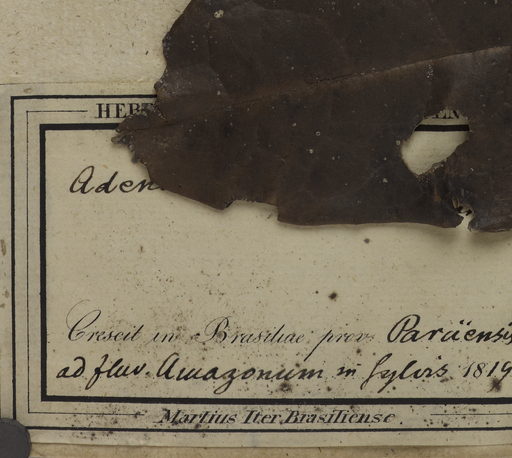 Crescit in Brasiliae prov. Paräensis
ad fluv. Amazonum in sylvis 1819
Martius Iter Brasiliense.